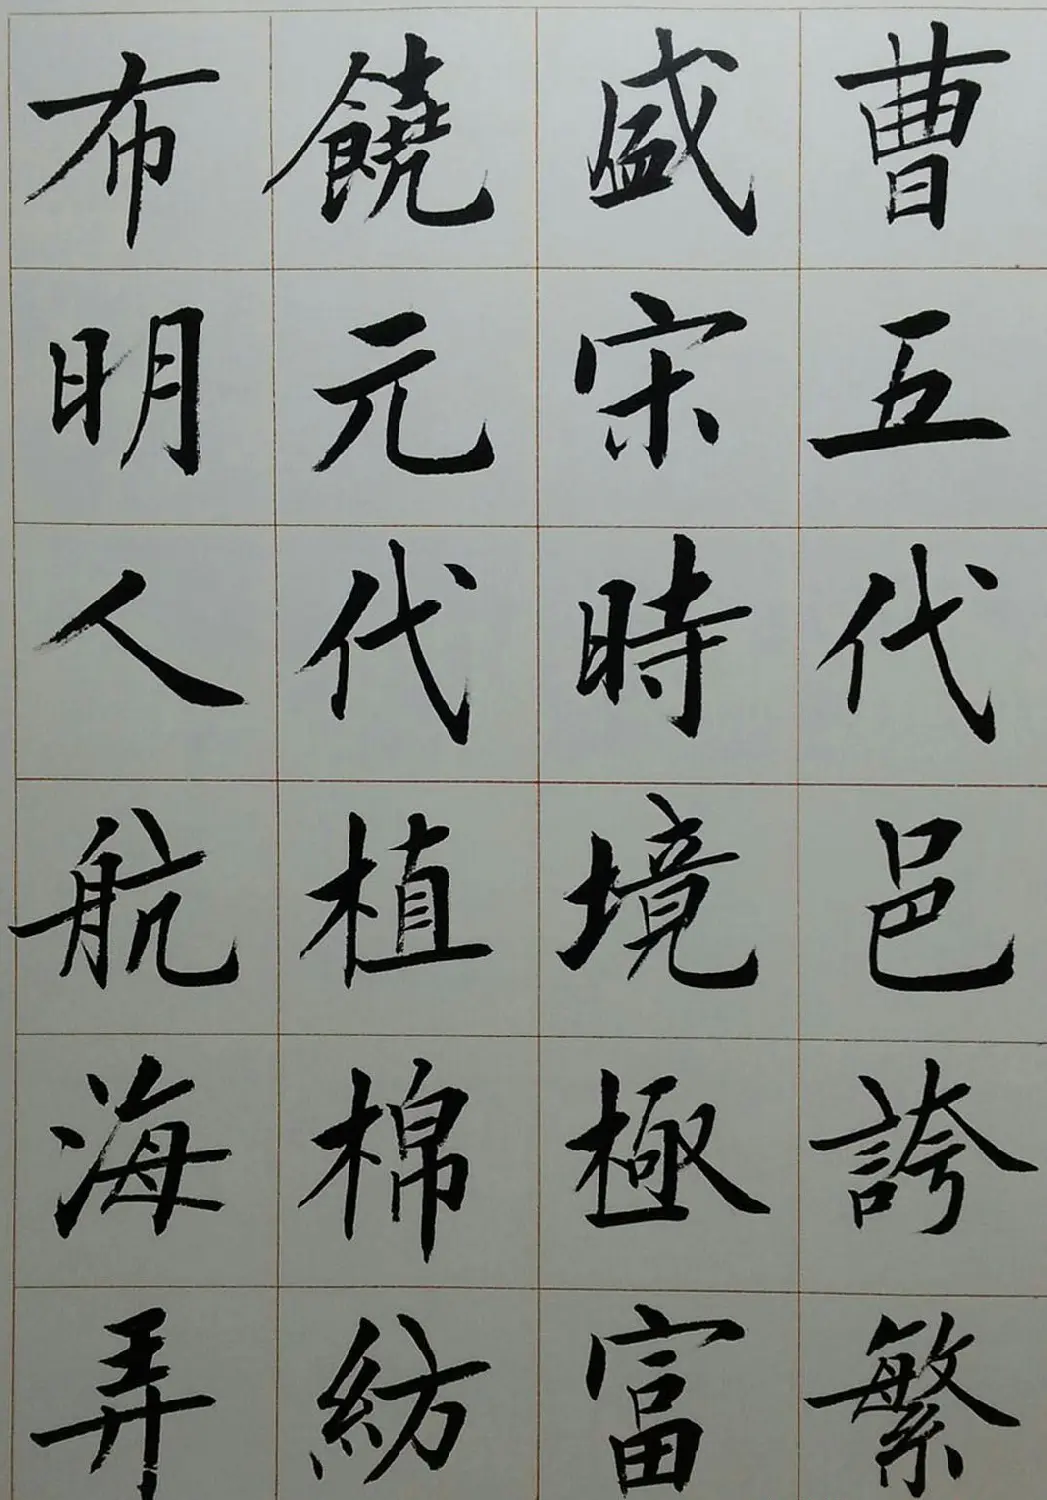 曹五代邑誇繁
盛宋時境極富
饒元代植棉紡
布明人航海弄